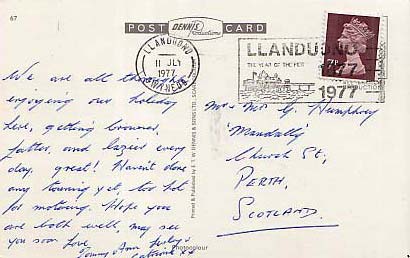 67
POST CARD
DENNIS
Productions
LLANDUDNO
11 JLY
1977
GWYNEDD
LLANDUDNO
THE YEAR OF THE PIER
1877
1977
7P
We are all thoroughly
enjoying our holiday
here, getting browner,
fatter, and lazier every
day, great! Haven't done
any touring yet, too hot
for motoring. Hope you
are both well, may see
you soon Love,
Tommy, Ann
Catherine xx
Printed & Published by E. T. W. DENNIS & SONS LTD., SCARBOROUGH
Mr & Mrs G. Humphrey
'Mandally'
Church St,
PERTH,
SCOTLAND.
Photocolour